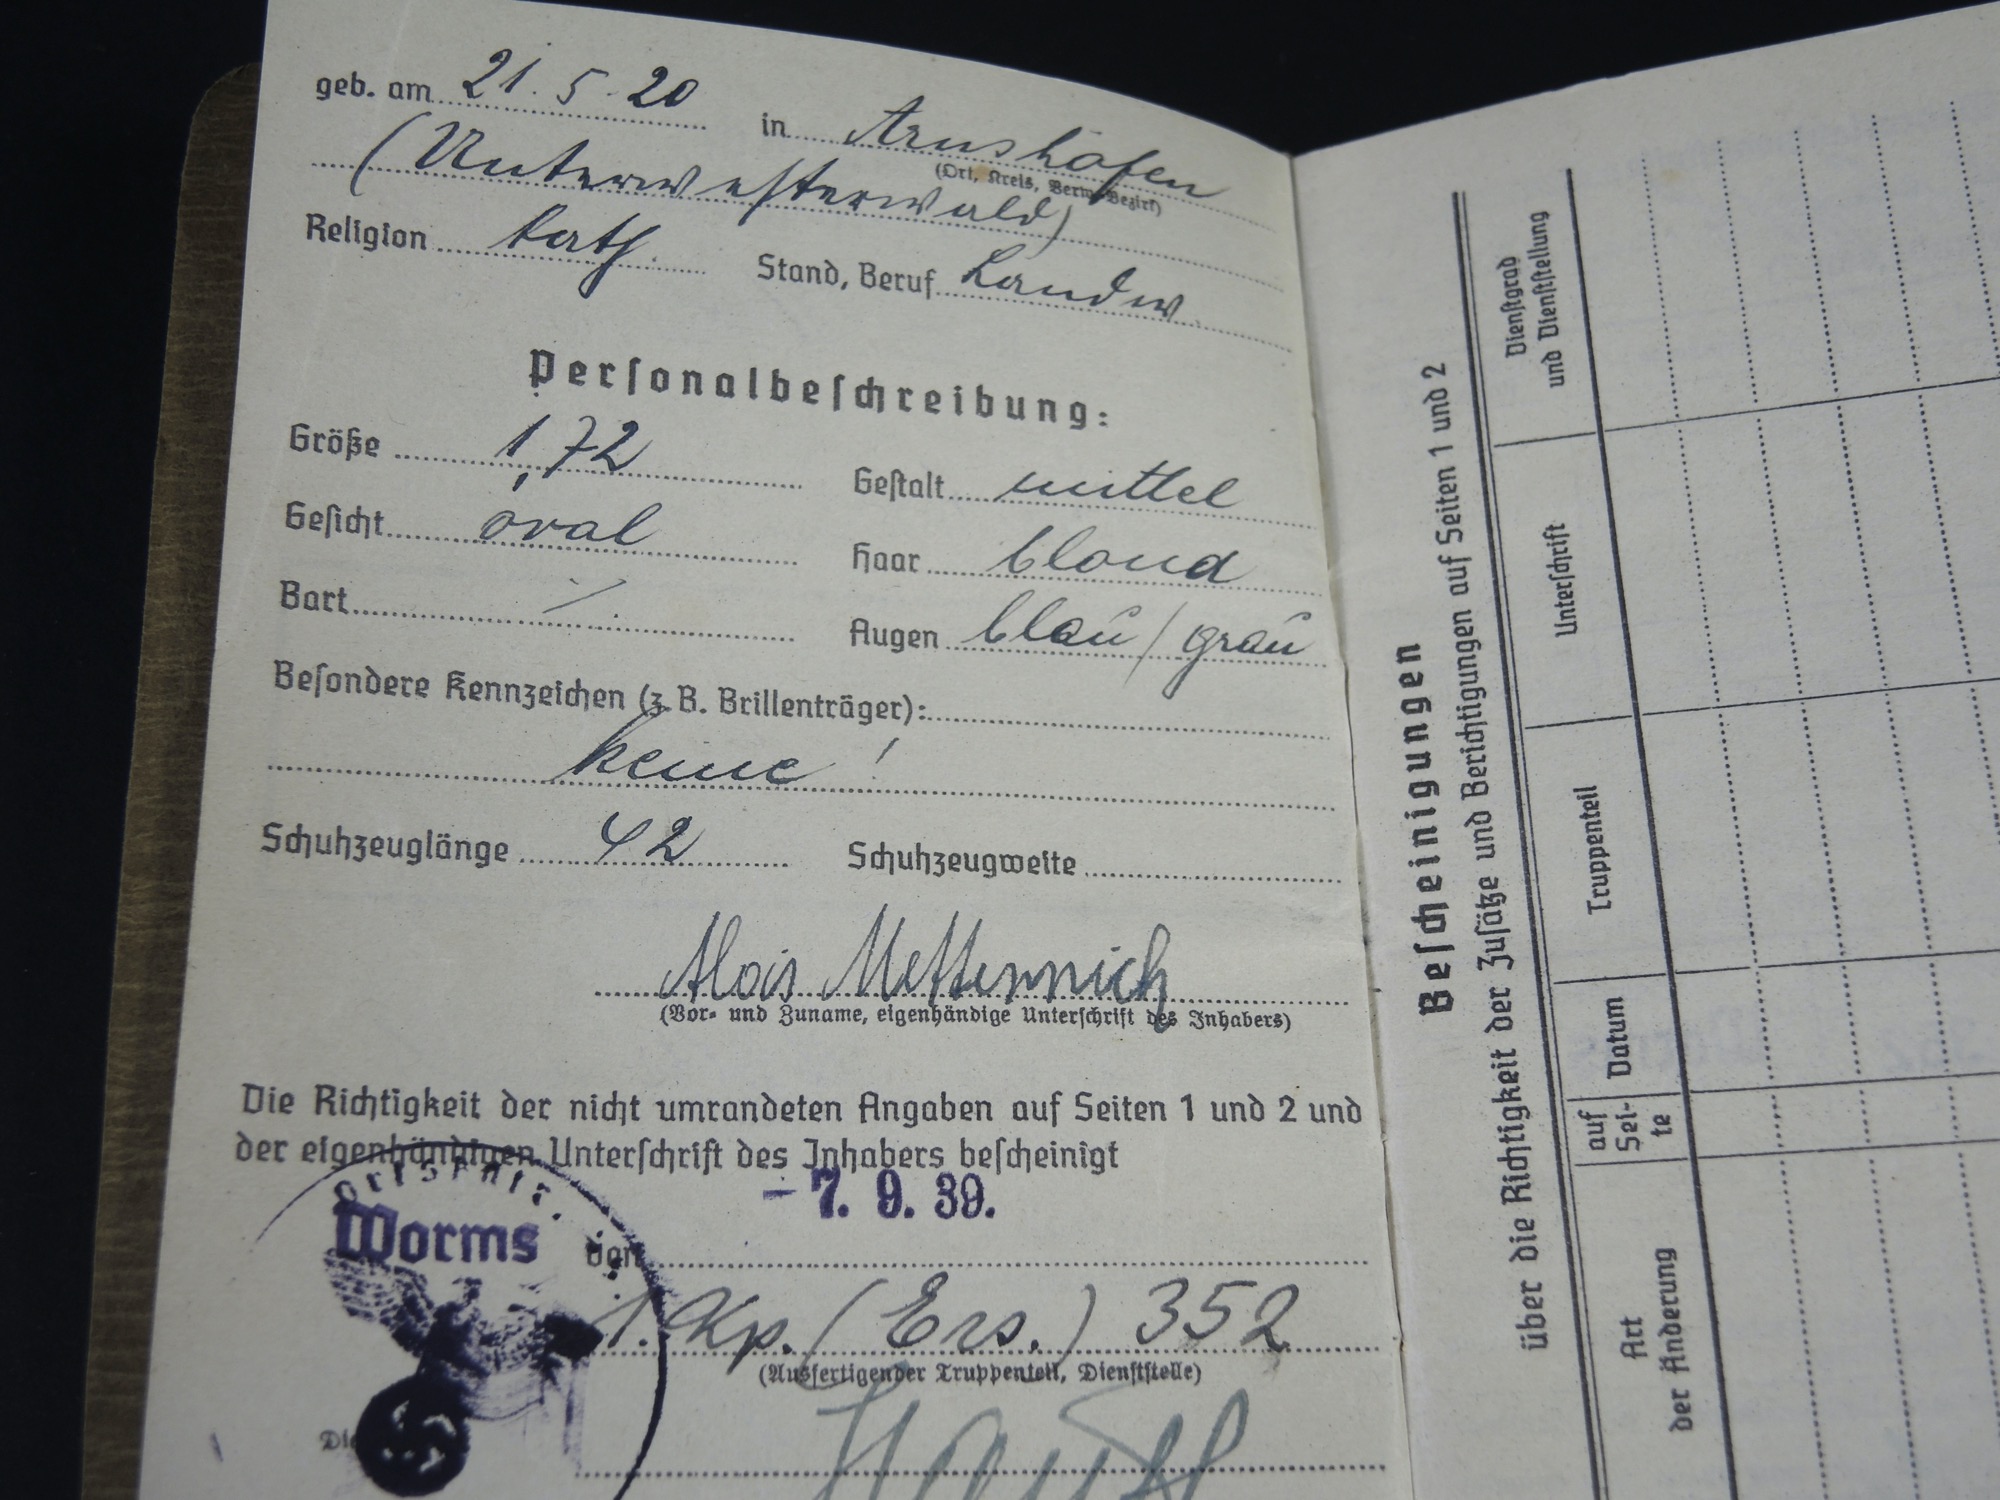 geb. am 21.5.20 in Arnshöfen
(Ort, Kreis, Verw.-Bezirk)
(Unterwesterwald)
Religion kath. Stand, Beruf Landw.
Personalbeschreibung:
Größe 1,72 Gestalt mittel
Gesicht oval Haar blond
Bart ./. Augen blau/grau
Besondere Kennzeichen (z. B. Brillenträger):
keine!
Schuhzeuglänge 42 Schuhzeugweite
Alois Metternich
(Vor- und Zuname, eigenhändige Unterschrift des Inhabers)
Die Richtigkeit der nicht umrandeten Angaben auf Seiten 1 und 2 und
der eigenhändigen Unterschrift des Inhabers bescheinigt
-7. 9. 39.
Worms
den
1. Kp. (Ers.) 352
(Ausfertigender Truppenteil, Dienststelle)
Bescheinigungen
über die Richtigkeit der Zusätze und Berichtigungen auf Seiten 1 und 2
Art
der Änderung
auf
Sei-
te
Datum
Truppenteil
Unterschrift
Dienstgrad
und Dienststellung